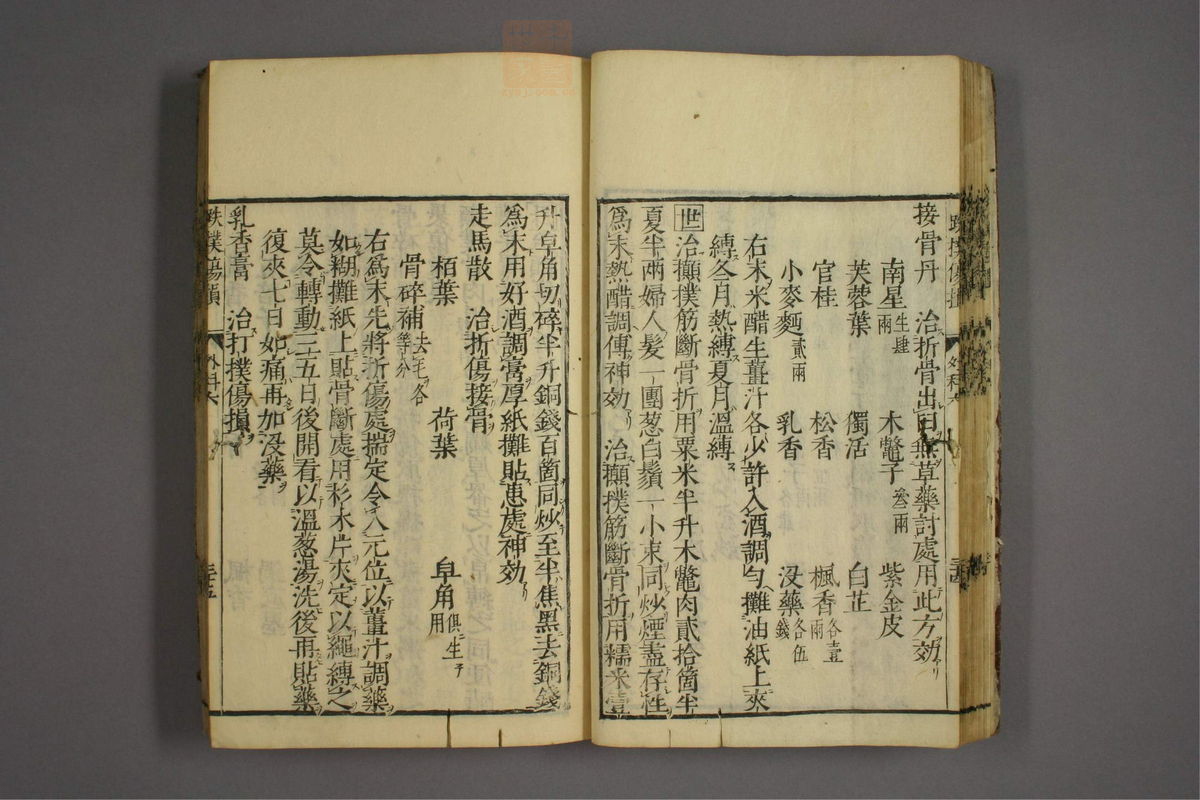 接骨丹　治折骨出臼無草藥討處用此方効
南星生肆兩　木鼈子叄兩　紫金皮
芙蓉葉　獨活　白芷
官桂　松香　楓香各壹兩
小麥麵貳兩　乳香　沒藥各伍錢
右末米醋生薑汁各少許入酒調勻攤油紙上夾
縛冬月熱縛夏月溫縛
世治攧撲筋斷骨折用粟米半升木鼈肉貳拾箇半
夏半兩婦人髮一團葱白鬚一小束同炒煙盡存性
爲末熱醋調傅神効　治攧撲筋斷骨折用糯米壹
升皁角切碎半升銅錢百箇同炒至半焦黑去銅錢
爲末用好酒調膏厚紙攤貼患處神効
走馬散　治折傷接骨
栢葉　荷葉　皁角俱生用
骨碎補去毛各等分
右爲末先將折傷處揣定令入元位以薑汁調藥
如糊攤紙上貼骨斷處用杉木片夾定以繩縛之
莫令轉動三五日後開看以溫葱湯洗後再貼藥
復夾七日如痛再加沒藥
乳香膏　治打撲傷損
跌撲傷損　外科六　三十五